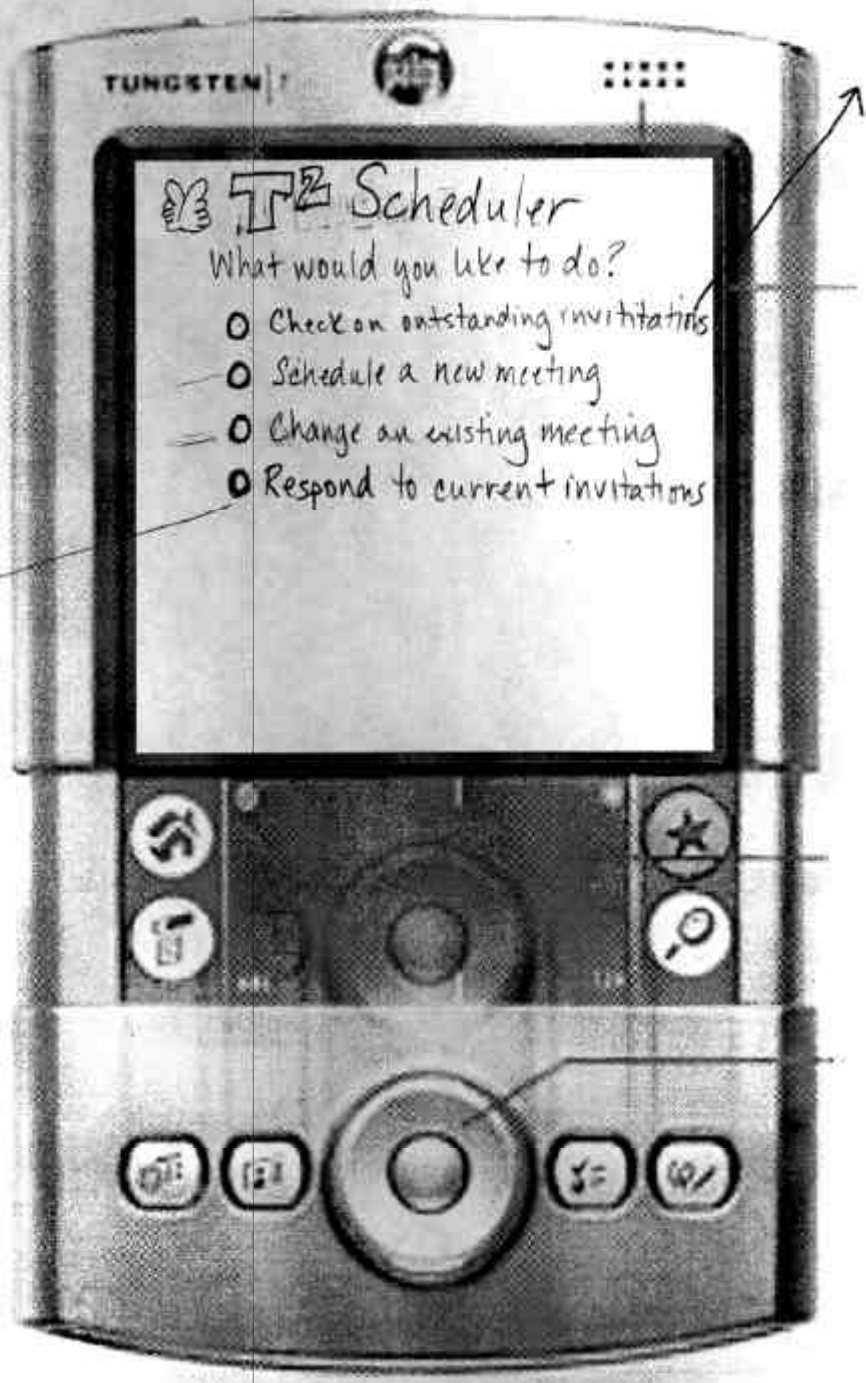 TUNGSTEN T
T² Scheduler
What would you like to do?
Check on outstanding invititations
Schedule a new meeting
Change an existing meeting
Respond to current invitations